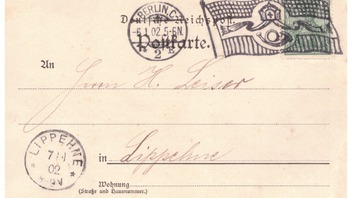 BERLIN.C.
Deutsche Reichspost
6.1.02.5-6N.
Postkarte.
2
An
Herrn H. Leiser
LIPPEHNE
7 1
02
in Lippehne
Wohnung
(Straße und Hausnummer.)